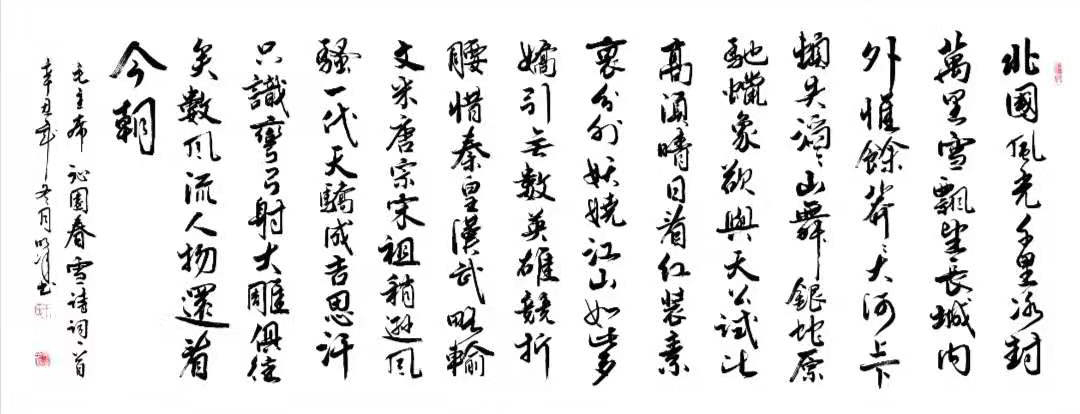 北國風光千里冰封
萬里雪飄望長城内
外惟餘莽〻大河上下
頓失滔〻山舞銀蛇原
馳蠟象欲與天公試比
高須晴日看红裝素
裹分外妖嬈江山如此多
嬌引无數英雄競折
腰惜秦皇漢武略輸
文采唐宗宋祖稍遜風
騷一代天驕成吉思汗
只識彎弓射大雕俱往
矣數風流人物還看
今朝
毛主席 沁園春雪 詩詞一首
辛丑年冬月 书